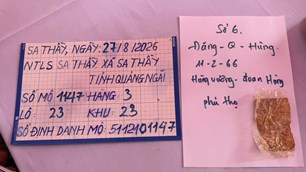 SA THẦY, NGÀY: 27/8/2026
NTLS SA THẦY XÃ SA THẦY
TỈNH QUẢNG NGÃI
SỐ MỘ 1147 HÀNG 3
LÔ 23 KHU 23
SỐ ĐỊNH DANH MỘ: 5112101147
Số 6.
Đặng - Q - Hùng
11-2-66
Hùng vương - đoan Hùng
phú thọ